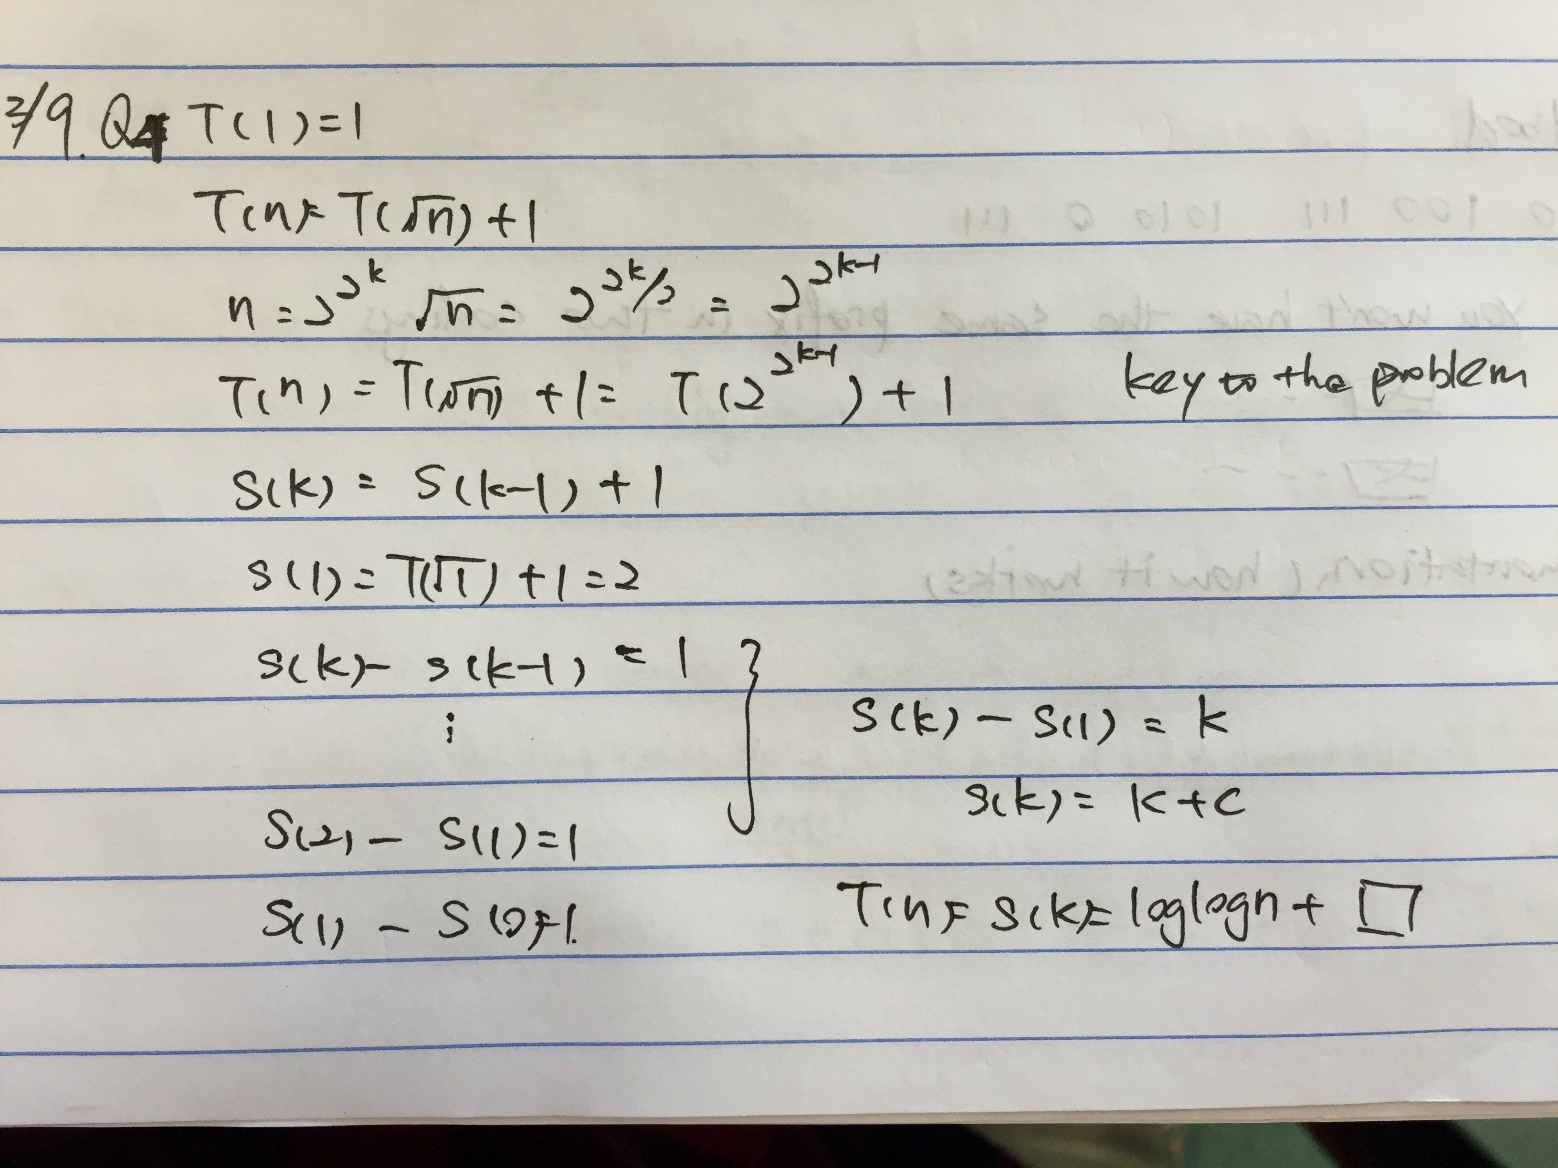 2/9. Q4 T(1)=1
T(n)= T(√n)+1
n=2^2^k √n = 2^2^k/2 = 2^2^k-1
T(n) = T(√n) +1= T(2^2^k-1) + 1 key to the problem
S(k) = S(k-1) + 1
S(1)=T(√1) +1=2
S(k)- S(k-1) = 1 }
⋮ S(k) - S(1) = k
S(k)= k+c
S(2) - S(1)=1
S(1) - S(0)=1. T(n)= S(k)= loglogn + □